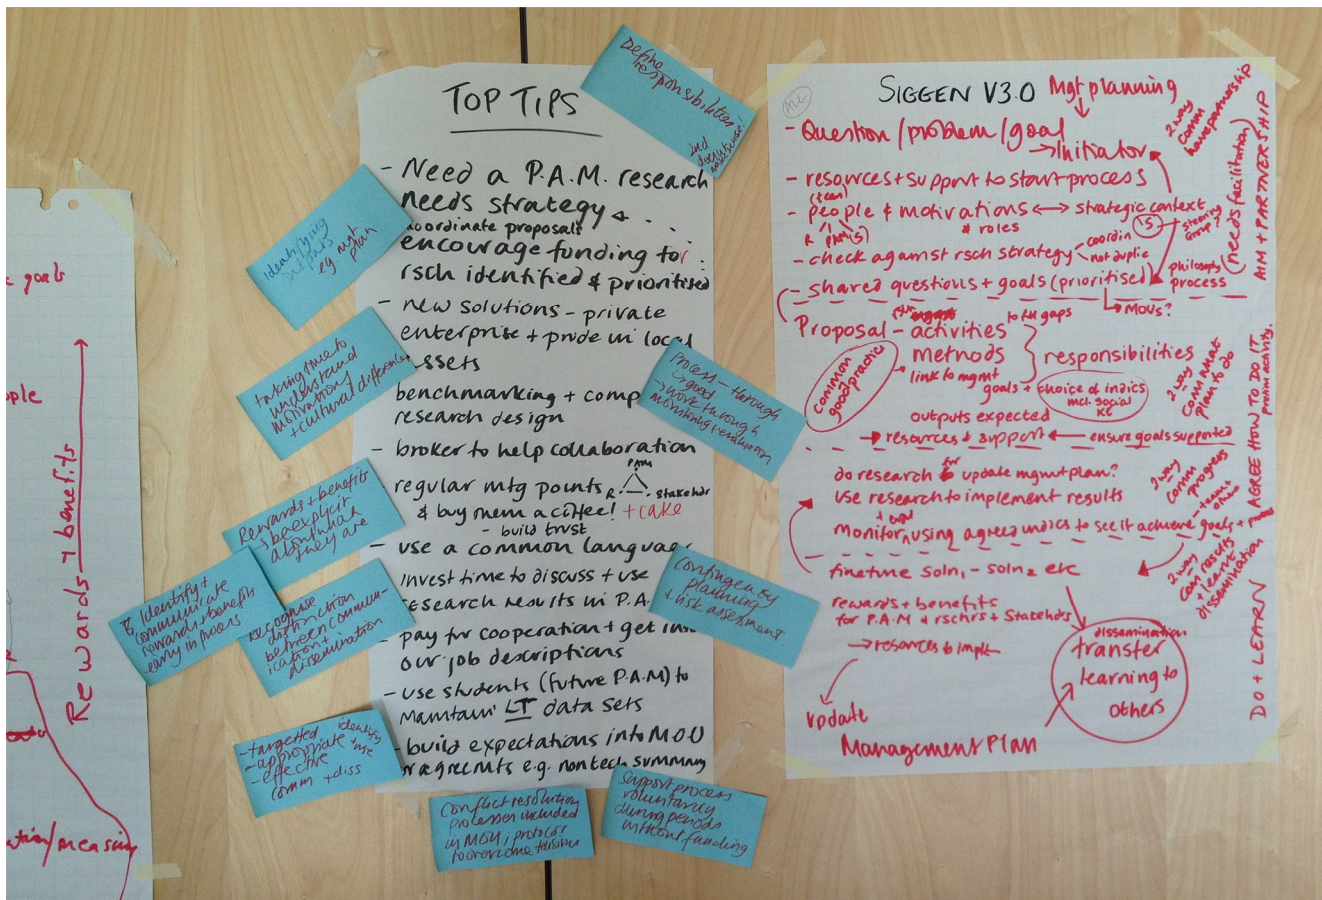 goals
ople
Rewards + benefits
TOP TIPS
- Need a P.A.M. research
needs strategy +
coordinate proposals
encourage funding for
rsch identified & prioritised
- new solutions - private
enterprise + pride in local
assets
benchmarking + comp
research design
- broker to help collaboration
regular mtg points
PAM
R
stakehdr
& buy them a coffee! + cake
- build trust
- use a common language
invest time to discuss + use
research results in P.A.
- pay for cooperation + get into
our job descriptions
- use students (future P.A.M) to
maintain LT data sets
- build expectations into MOU
or agreemts e.g. non tech summary
Define
responsibilities
2nd
Identifying
outputs
eg. mgt
plan
taking time to
understand
motivations
+ cultural differences
Rewards + benefits
→ be explicit
about what
they are
Identify +
communicate
rewards + benefits
early in process
Recognise
distinction
between commun-
ication +
dissemination
- targetted
- appropriate
- effective
comm + diss
identify
Process - through
→ good
→ work through
monitoring + evaluation
Contingency
planning
+ risk assessment
Conflict resolution
processes included
in MOU, protocol
Support process
voluntarily
during periods
without funding
ALL
SIGGEN V3.0
Mgt planning
- Question/problem/goal
→ Initiator
- resources + support to start process
(team)
- people & motivations ↔ strategic context
& roles
R
- check against rsch strategy
- coordin
- not duplic
steering
group?
- shared questions + goals (prioritised)
philosophy
process
→ MOUs?
Proposal - activities
to fill gaps
methods
link to mgmt
goals +
responsibilities
common
good practice
choice of indics
incl. social
outputs expected
→ resources & support ← ensure goals supported
do research for update mgmt plan?
use research to implement results
monitor using agreed indics to see if achieve goals
+ eval
finetune soln1 - soln2 etc
rewards + benefits
for P.A.M & rschrs + Stakehdrs
→ resources to impl
update
Management Plan
dissemination
transfer
learning to
others
2 way
comm
have partnership
(needs facilitation)
AIM + PARTNERSHIP
2 way
comm what
plan to do
AGREE HOW TO DO IT
2 way
comm
progress
2 way
com results
+ learnt
dissemination
DO + LEARN